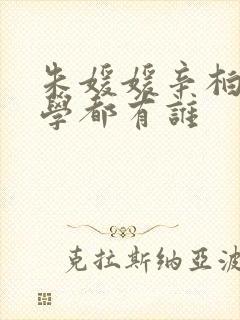 朱媛媛辛柏
學都有誰
克拉斯纳亚波